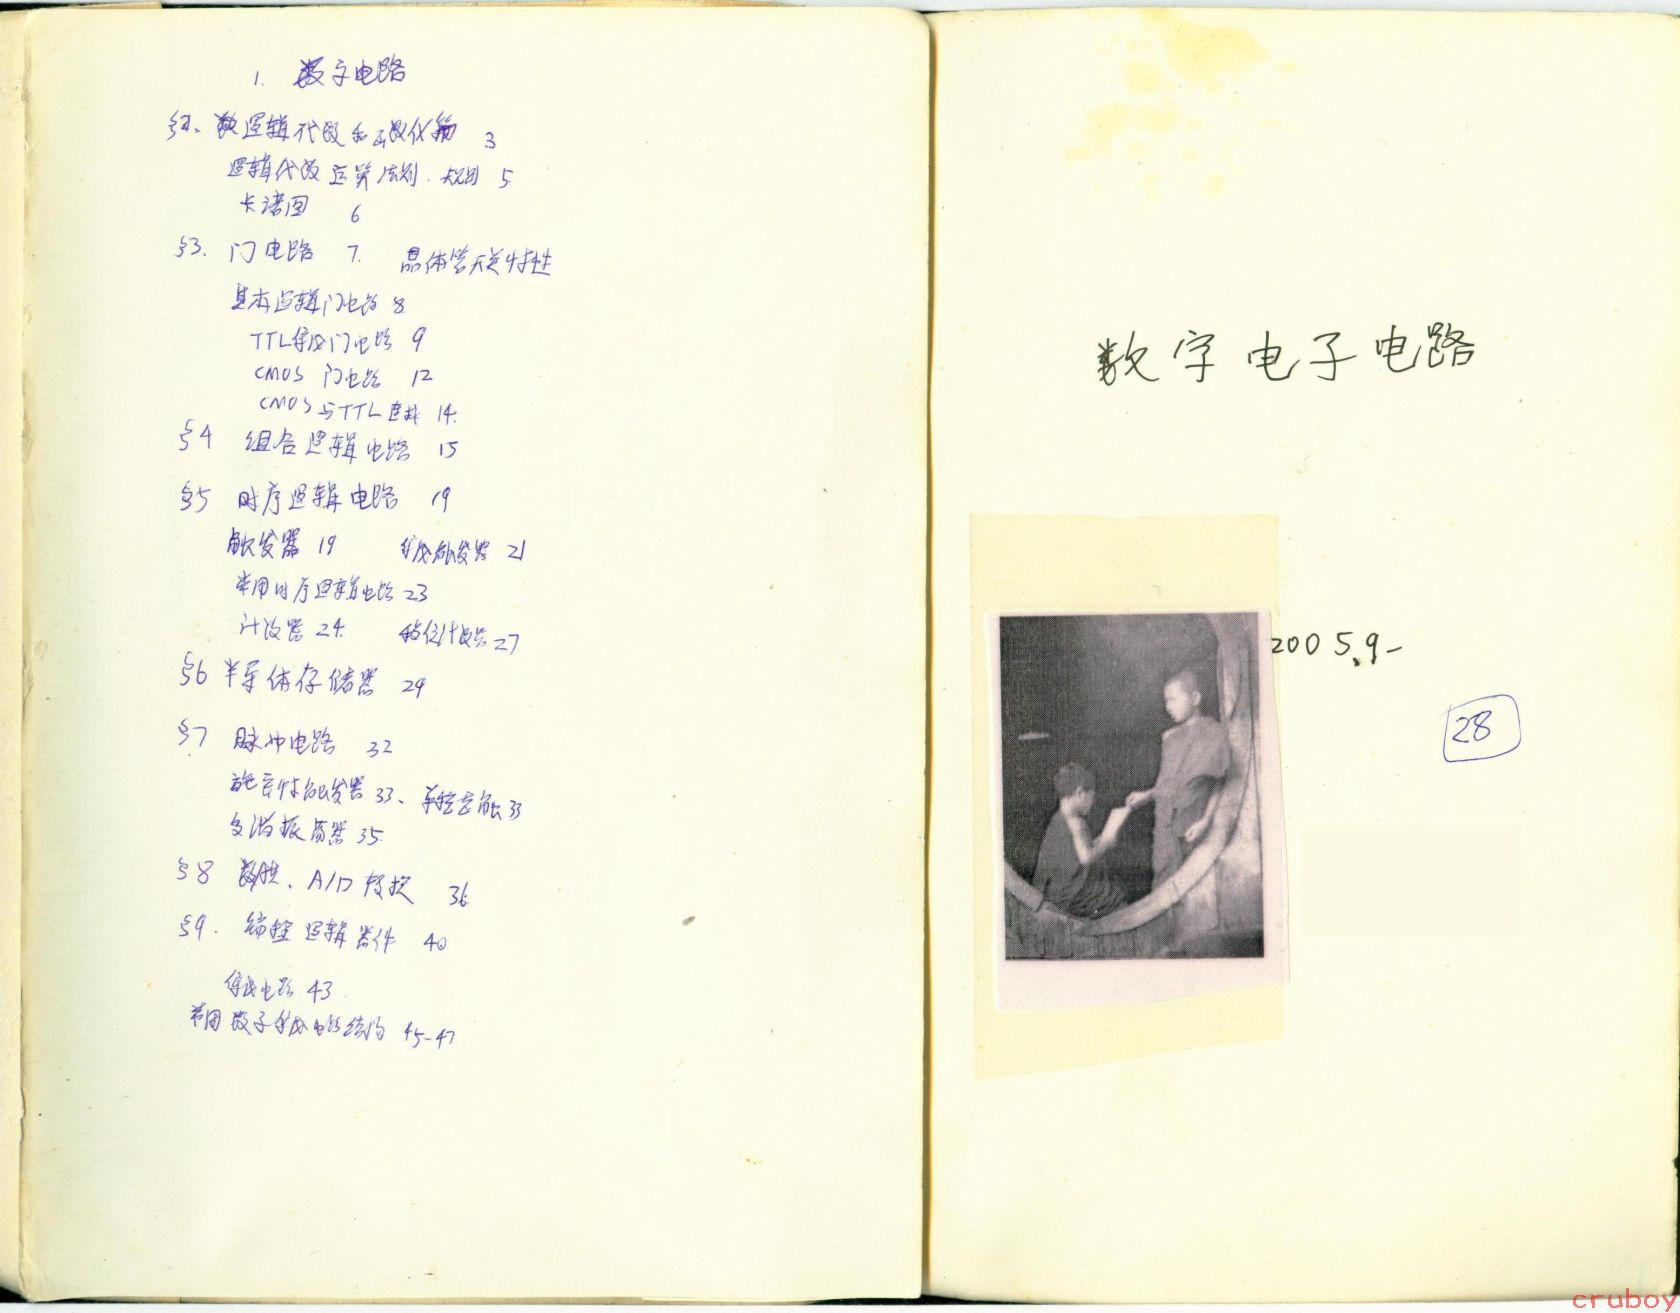 1. 数字电路
§2. 数逻辑代数和函数化简 3
逻辑代数运算法则.规则 5
卡诺图 6
§3. 门电路 7. 晶体管开关特性
基本逻辑门电路 8
TTL集成门电路 9
CMOS 门电路 12
CMOS与TTL连接 14.
§4 组合逻辑电路 15
§5 时序逻辑电路 19
触发器 19 集成触发器 21
常用时序逻辑电路 23
计数器 24. 移位计数器 27
§6 半导体存储器 29
§7 脉冲电路 32
施密特触发器 33、单稳态触 33
多谐振荡器 35.
§8 数模、A/D 转换 36
§9. 编程逻辑器件 40
集成电路 43.
常用数字集成电路结构 45-47
数字电子电路
2005.9-
28
cruboy